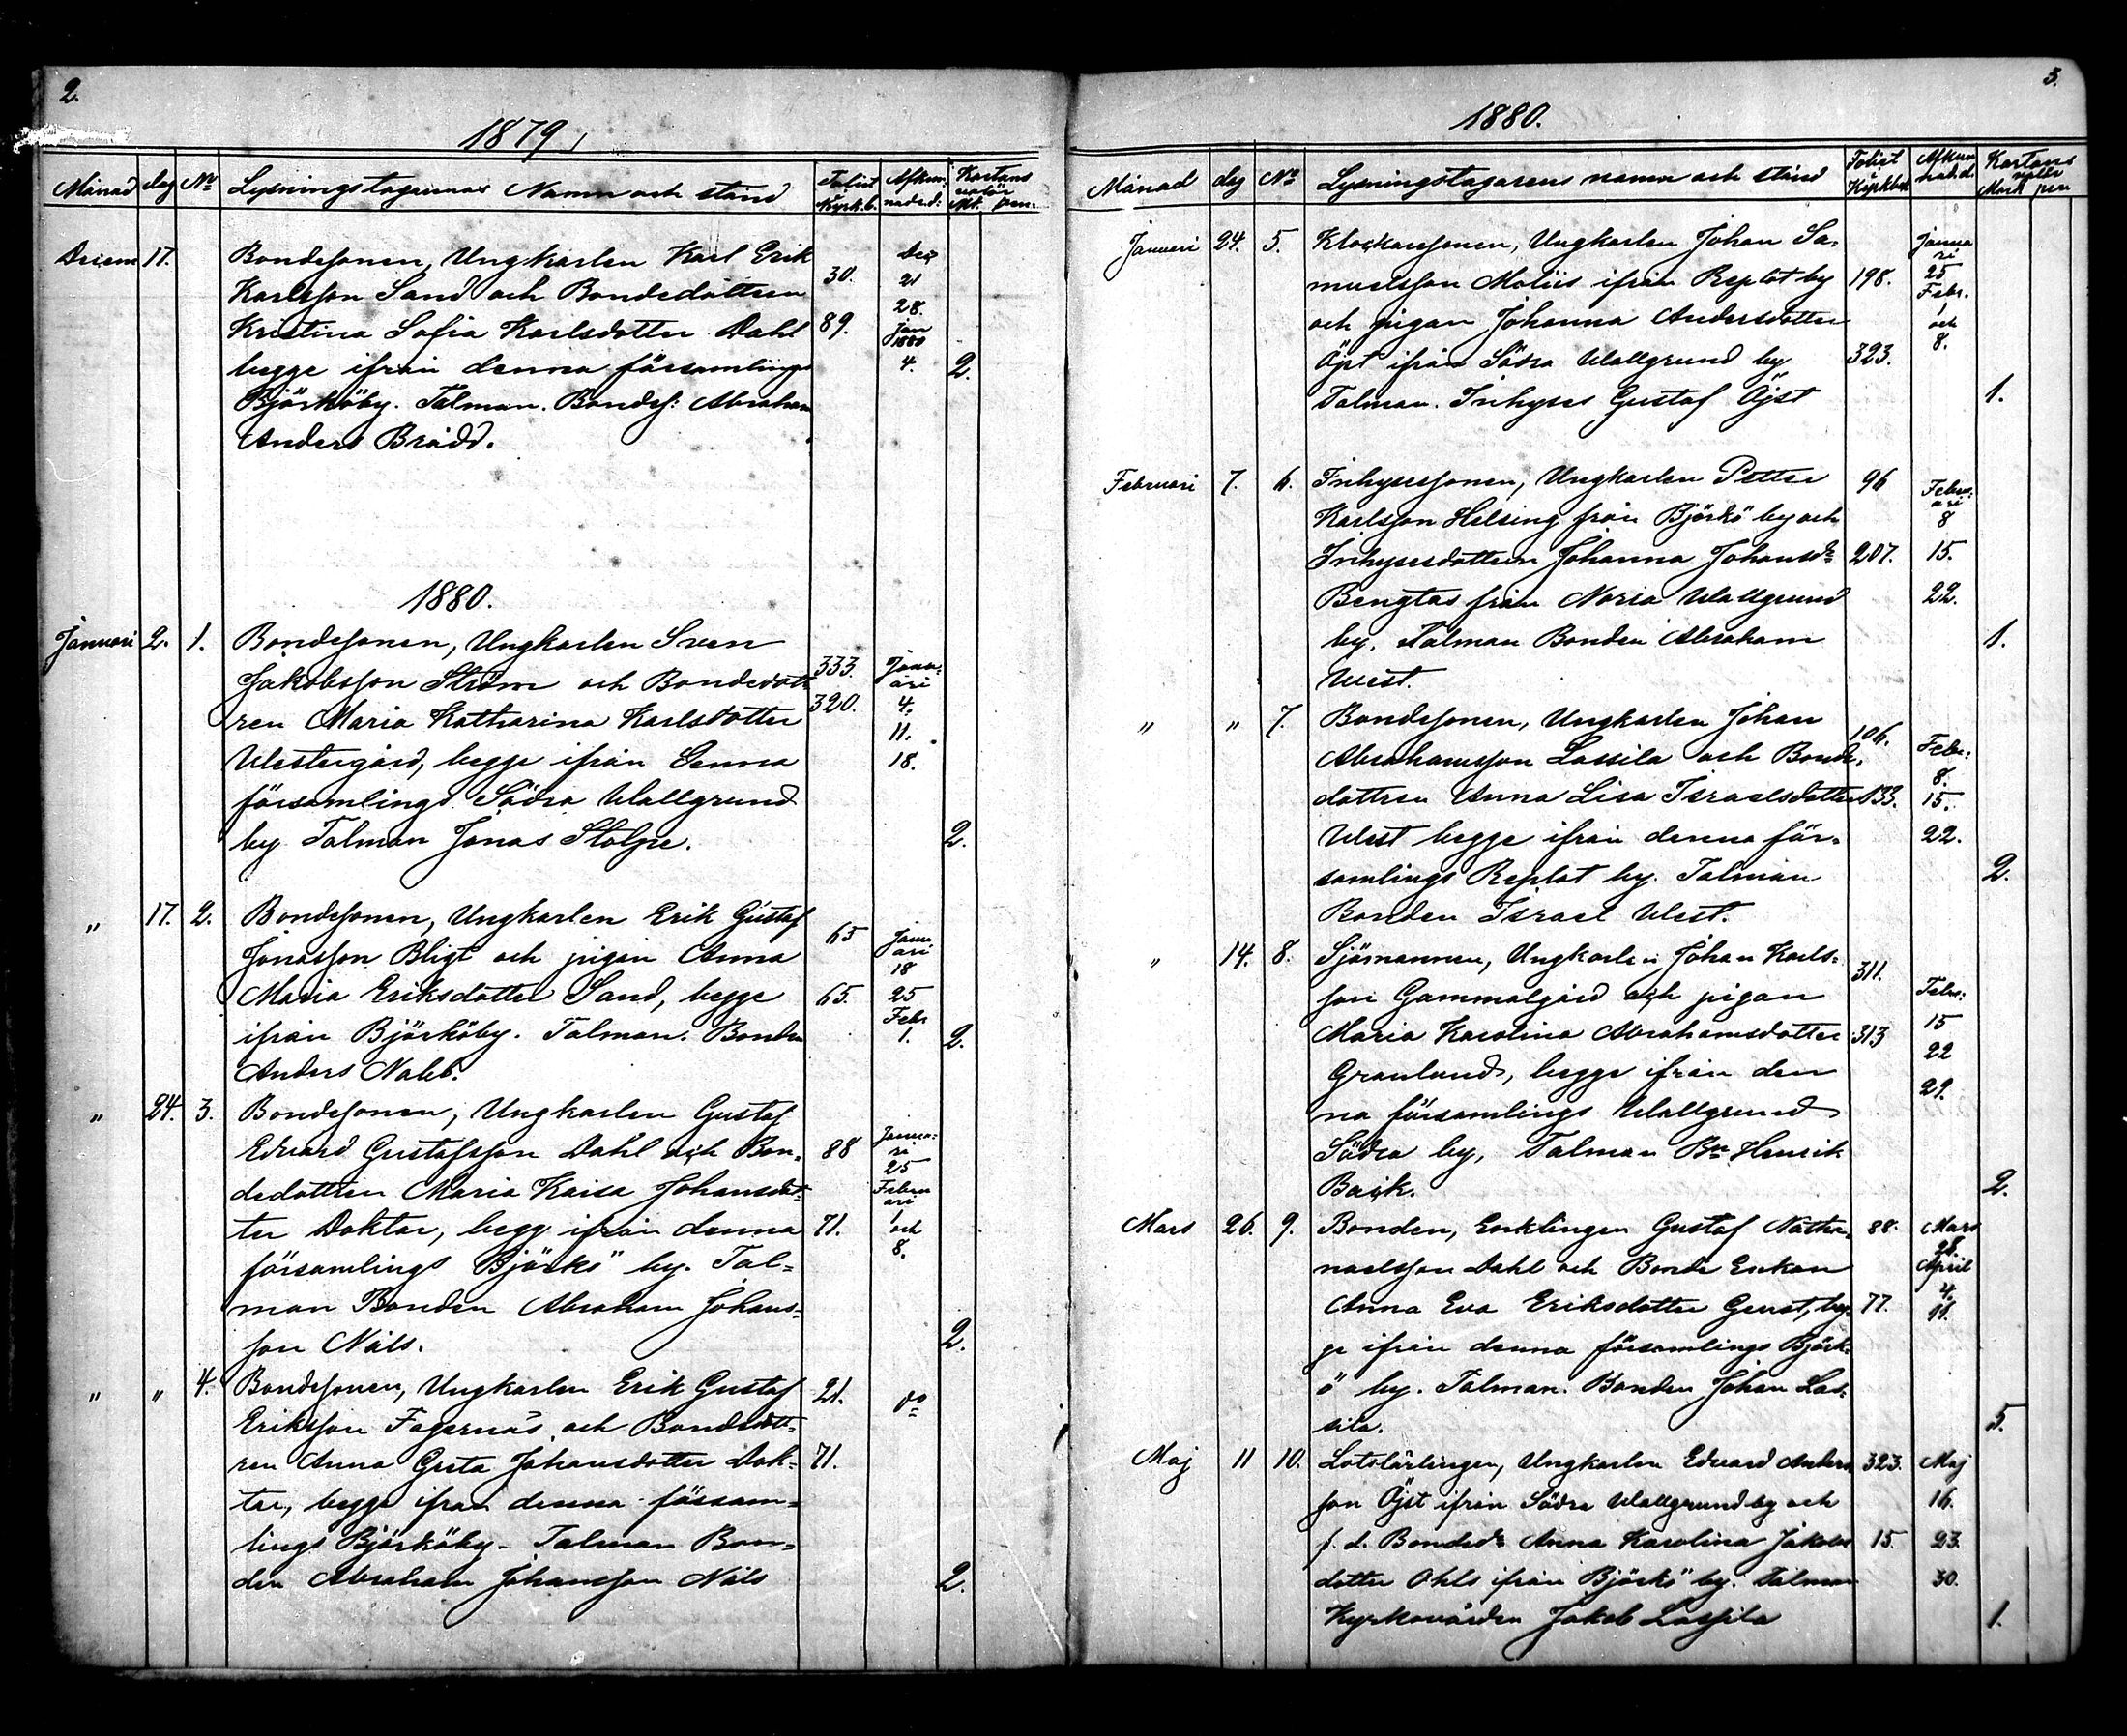 2.
1879
Månad dag No Lysningstagarnas Namn och stånd Foliot Kyrk.b. Afkun- nad.d: Kartans Mk. pen.
Decem 17. Bondesonen, Ungkarlen Karl Erik Dec
Karlsson Sand och Bondedottren 30. 21
28.
Kristina Sofia Karlsdotter Dahl 89. jan 1880
begge ifrån denna församlings 4. 2.
Björköby. Talman. Bondes: Abraham
Anders Brådd.
1880.
Januari 2. 1. Bondesonen, Ungkarlen Sven
Jakobsson Ström och Bondedott- 333. Janu-
ari
ren Maria Katharina Karlsdotter 320. 4.
11.
Westergård, begge ifrån denna 18.
församlings Södra Wallgrund
by Talman Jonas Stolpe. 2.
" 17. 2. Bondesonen, Ungkarlen Erik Gustaf
Jonasson Bligt och pigan Anna 65 Janu
ari
18
Maria Eriksdotter Sand, begge 65. 25
ifrån Björköby. Talman. Bonden Febr
1. 2.
Anders Nabb.
" 24. 3. Bondesonen, Ungkarlen Gustaf
Edvard Gustafsson Dahl och Bon- 88 Janua-
ri
25
dedottren Maria Kaisa Johansdot- Febru
ari
ter Doktar, begg ifrån denna 71. 1
och
församlings Björkö by. Tal- 8.
man Bonden Abraham Johans-
son Nåls. 2.
" " 4. Bondesonen, Ungkarlen Erik Gustaf 21. do
Eriksson Fagernäs, och Bondedott-
ren Anna Greta Johansdotter Dok- 71.
tar, begge ifrån denna försam-
lings Björköby - Talman Bon-
den Abraham Johansson Nåls 2.
3.
1880.
Månad dag No Lysningstagarens namn och stånd Foliot Kyrkbok Afkun nad.d. Kartans Mark pen
Januari 24. 5. Klockarsonen, Ungkarlen Johan Sa- Janua
ri
muelsson Moliis ifrån Replot by 198. 25
Febr.
och pigan Johanna Andersdotter 1
och
Öjst ifrån Södra Wallgrund by 323. 8.
Talman. Inhyses Gustaf Öjst 1.
Februari 7. 6. Inhysessonen, Ungkarlen Petter 96 Febru-
ari
Karlsson Helsing från Björkö by och 8
Inhysesdottren Johanna Johansdr 207. 15.
Bengtas från Norra Wallgrund 22.
by. Talman Bonden Abraham 1.
West.
" " 7. Bondesonen, Ungkarlen Johan
Abrahamsson Lassila och Bonde- 106. Febr:
8.
dottren Anna Lisa Israelsdotter 133. 15.
West begge ifrån denna för- 22.
samlings Replot by. Talman 2.
Bonden Israel West.
" 14. 8. Sjömannen, Ungkarlen Johan Karls-
son Gammalgård och pigan 311. Febr:
Maria Karolina Abrahamsdotter 313 15
22
Granlund, begge ifrån den
29.
na församlings Wallgrund
Södra by, Talman Bn Henrik
Back. 2.
Mars 26. 9. Bonden, Enklingen Gustaf Natha- 88. Mars
28.
naelsson Dahl och Bonde Enkan April
Anna Eva Eriksdotter Genst, beg- 77. 4.
11.
ge ifrån denna församlings Björk-
ö by. Talman. Bonden Johan Las-
sila. 5.
Maj 11 10. Lotslärlingen, Ungkarlen Edvard Anders 323. Maj
son Öjst ifrån Södra Wallgrund by och 16.
f. d. Bondedr Anna Karolina Jakobs 15. 23.
dotter Ohls ifrån Björkö by. Talman 30.
Kyrkovärden Jakob Lassila 1.